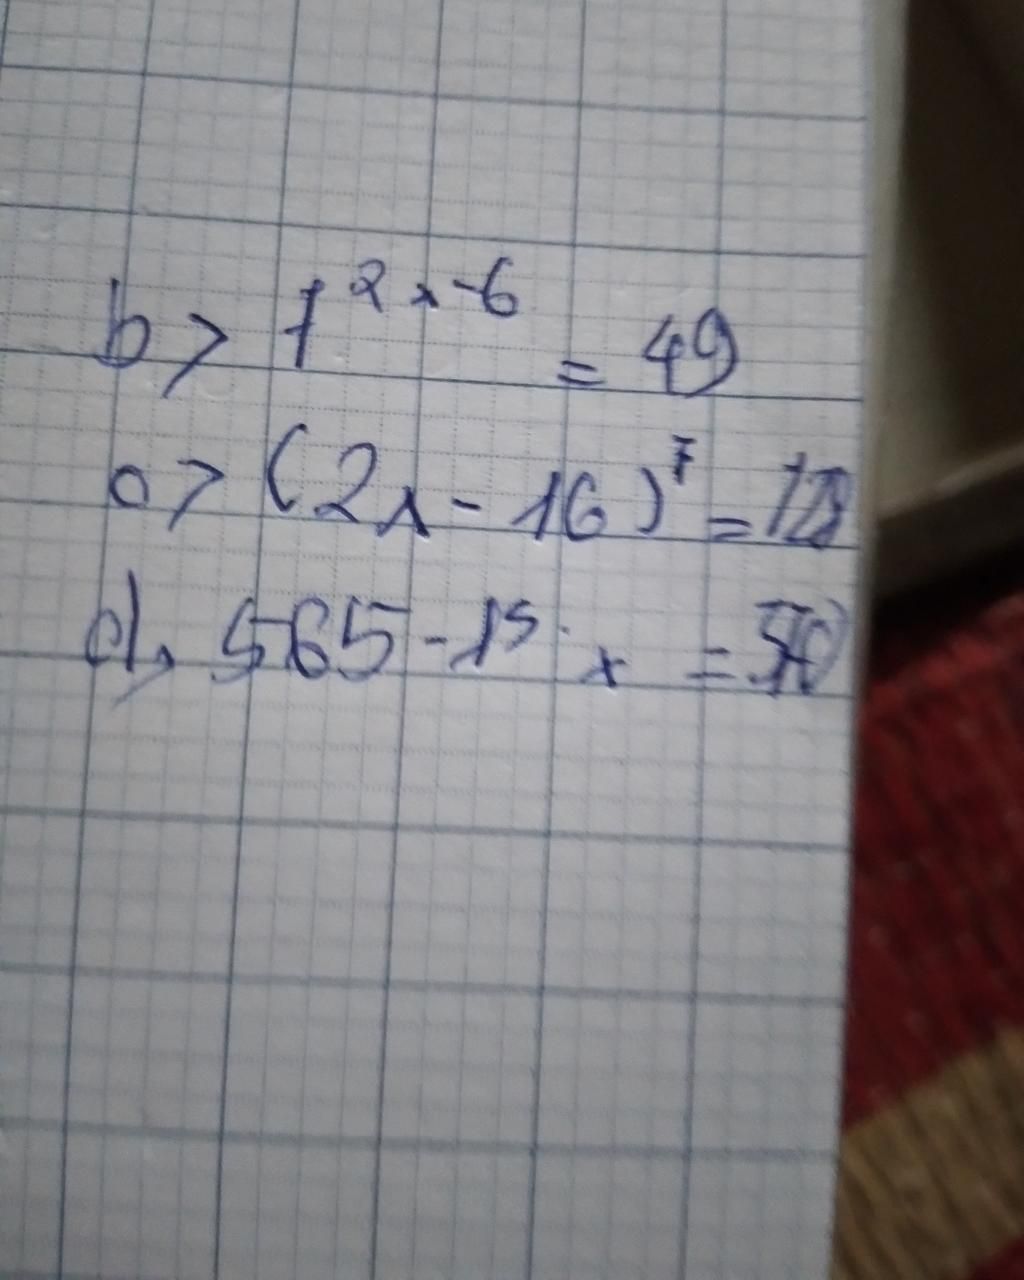 b> 7^{2x-6} = 49
c> (2x - 16)^7 = 128
d, 565 - 15 . x =